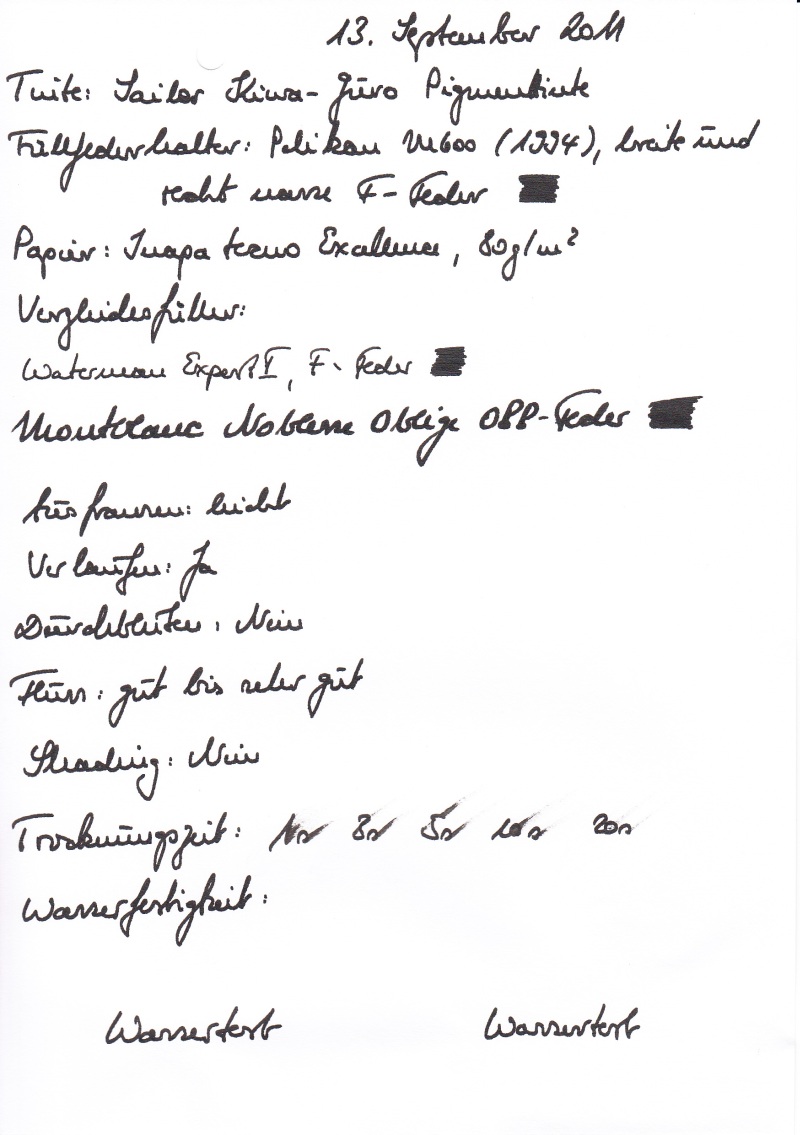 13. September 2011
Tinte: Sailor Kiwa-Guro Pigmenttinte
Füllfederhalter: Pelikan M600 (1994), breite und
recht nasse F-Feder
Papier: Inapa tecno Excellence, 80g/m²
Vergleichsfüller:
Waterman Expert I, F-Feder
Montblanc Noblesse Oblige OBB-Feder
Ausfransen: leicht
Verlaufen: Ja
Durchbluten: Nein
Fluss: gut bis sehr gut
Shading: Nein
Trocknungszeit: 1s 3s 5s 10s 20s
Wasserfestigkeit:
Wassertest Wassertest